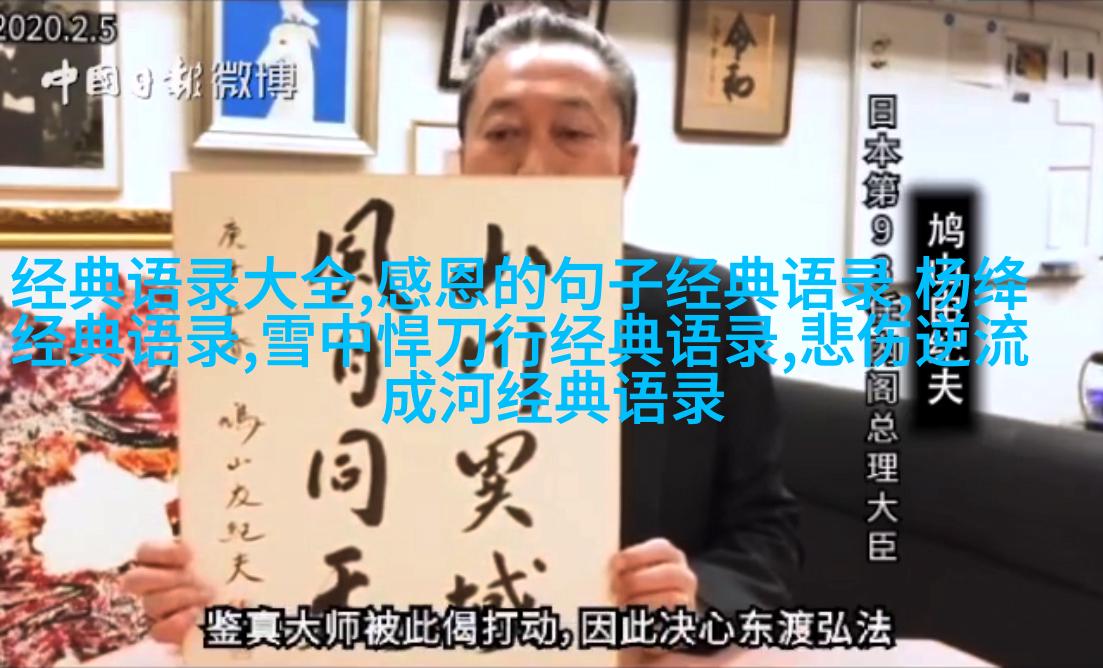 2020.2.5
中國日報微博
令和
日本第9
阁总理大臣
鸠
夫
山川異域
風月同天
鳩山友紀夫
经典语录大全,感恩的句子经典语录,杨绛
经典语录,雪中悍刀行经典语录,悲伤逆流
成河经典语录
鉴真大师被此偈打动,因此决心东渡弘法